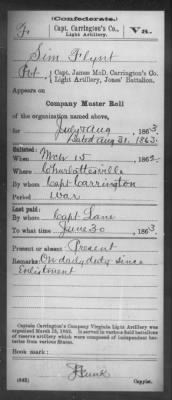 (Confederate.)
F Capt. Carrington's Co., Light Artillery. Va.
Sim Flynt
Pvt., Capt. James McD. Carrington's Co.
Light Artillery, Jones' Battalion.
Appears on
Company Muster Roll
of the organization named above,
for July & Aug, 1863.
Dated Aug 31, 1863.
Enlisted:
When Mch 15, 1862.
Where Charlottesville
By whom Capt Carrington
Period War
Last paid:
By whom Capt Lane
To what time June 30, 1863.
Present or absent Present
Remarks: On daily duty since
Enlistment
Captain Carrington's Company Virginia Light Artillery was
organized March 13, 1862. It served in various field battalions
of reserve artillery which were composed of independent bat-
teries from various States.
Book mark:
(642)
Copyist.